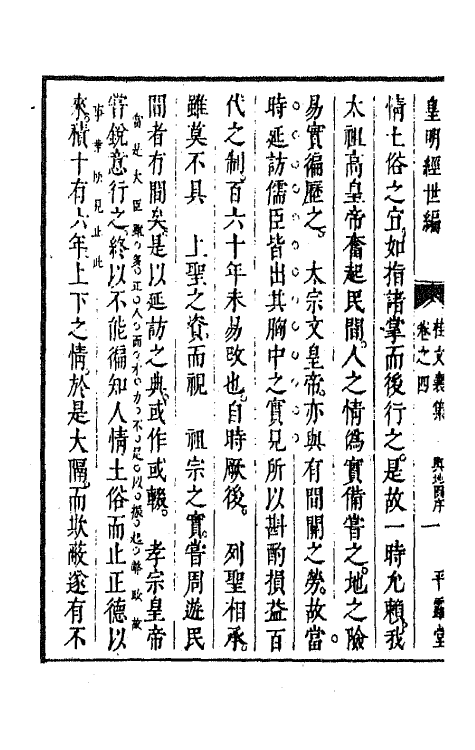 皇明經世編
桂文襄集 輿地圖序 一 平露堂
卷之四
情土俗之宜如指諸掌而後行之是故一時允賴我
太祖高皇帝奮起民間人之情僞實備嘗之地之險
易實徧歷之 太宗文皇帝亦與有間關之勞故當
時延訪儒臣皆出其胸中之實見所以斟酌損益百
代之制百六十年未易攺也自時厥後 列聖相承
雖莫不具 上聖之資而視 祖宗之實嘗周遊民
間者有間矣是以延訪之典或作或輟 孝宗皇帝
當是大臣
正人而才力不足以振起弊政故
嘗銳意行之終以不能徧知人情土俗而止正德以
止此
來積十有六年上下之情於是大隔而欺蔽遂有不